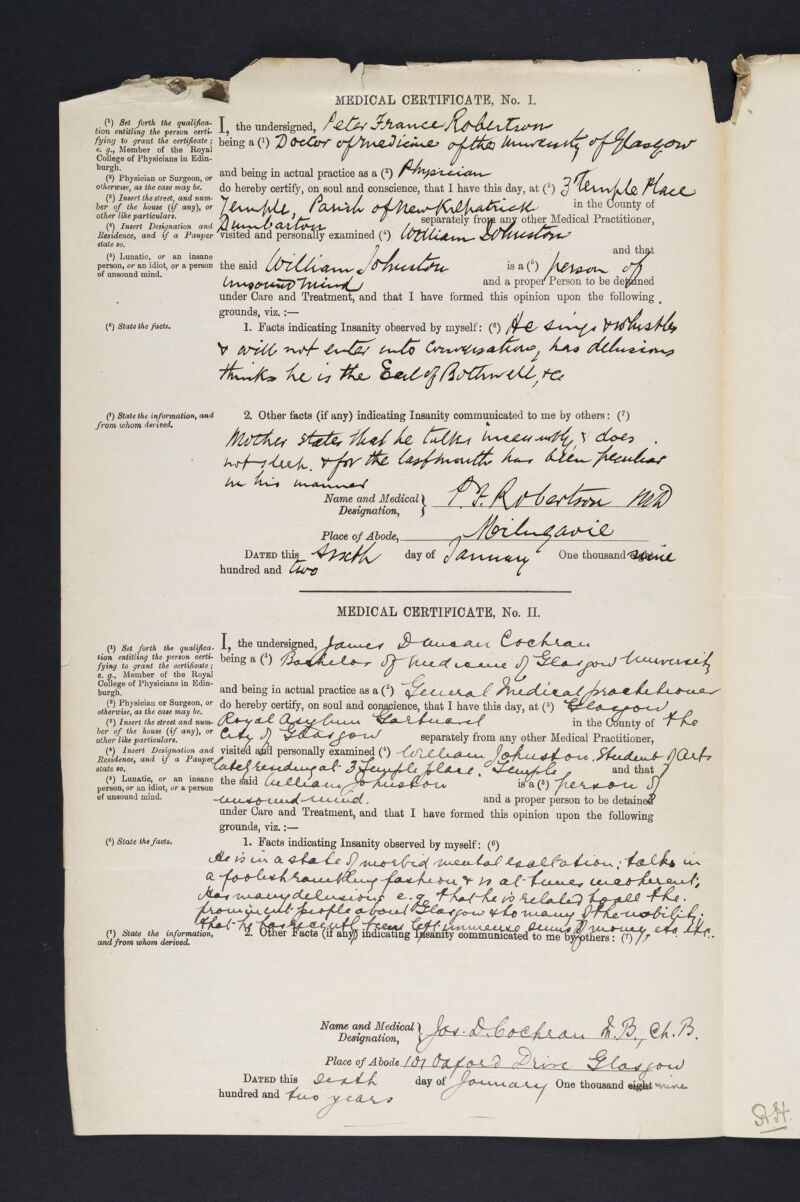 MEDICAL CERTIFICATE, No. I.
(¹) Set forth the qualifica-
tion entitling the person certi-
fying to grant the certificate;
e. g., Member of the Royal
College of Physicians in Edin-
burgh.
(²) Physician or Surgeon, or
otherwise, as the case may be.
(³) Insert the street, and num-
ber of the house (if any), or
other like particulars.
(⁴) Insert Designation and
Residence, and if a Pauper
state so.
(⁵) Lunatic, or an insane
person, or an idiot, or a person
of unsound mind.
I, the undersigned, Peter France Robertson
being a (¹) Doctor of medicine of the University of Glasgow
and being in actual practice as a (²) Physician
do hereby certify, on soul and conscience, that I have this day, at (³) 3 Temple Place
Temple, Parish of New Kilpatrick in the County of
Dumbarton separately from any other Medical Practitioner,
visited and personally examined (⁴) William Johnston
and that
the said William Johnston is a (⁵) person of
unsound mind and a proper Person to be detained
under Care and Treatment, and that I have formed this opinion upon the following
grounds, viz. :—
(⁶) State the facts.
1. Facts indicating Insanity observed by myself: (⁶) He sings & whistles
& will not enter into conversation, has delusions
thinks he is the Earl of Bothwell, &c
(⁷) State the information, and
from whom derived.
2. Other facts (if any) indicating Insanity communicated to me by others: (⁷)
Mother states that he talks incessantly, & does
not sleep. & for the last month has been peculiar
in his manner
Name and Medical
Designation, P. F. Robertson MD
Place of Abode, Milngavie
DATED this Sixth day of January One thousand nine
hundred and two
MEDICAL CERTIFICATE, No. II.
(¹) Set forth the qualifica-
tion entitling the person certi-
fying to grant the certificate;
e. g., Member of the Royal
College of Physicians in Edin-
burgh.
(²) Physician or Surgeon, or
otherwise, as the case may be.
(³) Insert the street and num-
ber of the house (if any), or
other like particulars.
(⁴) Insert Designation and
Residence, and if a Pauper
state so.
(⁵) Lunatic, or an insane
person, or an idiot, or a person
of unsound mind.
I, the undersigned, James Duncan Cochran
being a (¹) Bachelor of Medicine of Glasgow University
and being in actual practice as a (²) General Medical practitioner
do hereby certify, on soul and conscience, that I have this day, at (³) Glasgow
Royal Asylum Gartnavel in the County of the
City of Glasgow separately from any other Medical Practitioner,
visited and personally examined (⁴) William Johnston, Student of Arts
lately residing at 3 Temple place, Temple and that
the said William Johnston is a (⁵) person of
unsound mind. and a proper person to be detained
under Care and Treatment, and that I have formed this opinion upon the following
grounds, viz. :—
(⁶) State the facts.
1. Facts indicating Insanity observed by myself: (⁶)
He is in a state of morbid mental exaltation; talks in
a foolish rambling fashion & is at times incoherent;
Has many delusions e.g. that he is related to all the
prominent people about Glasgow & to many of the nobility;
that he has recently been left immense sums of money etc etc.
(⁷) State the information,
and from whom derived.
2. Other Facts (if any) indicating Insanity communicated to me by others: (⁷)
Name and Medical
Designation, Jas. D. Cochran M.B., Ch.B.
Place of Abode 101 Oxford Drive Glasgow
DATED this sixth day of January One thousand eight nine
hundred and two years